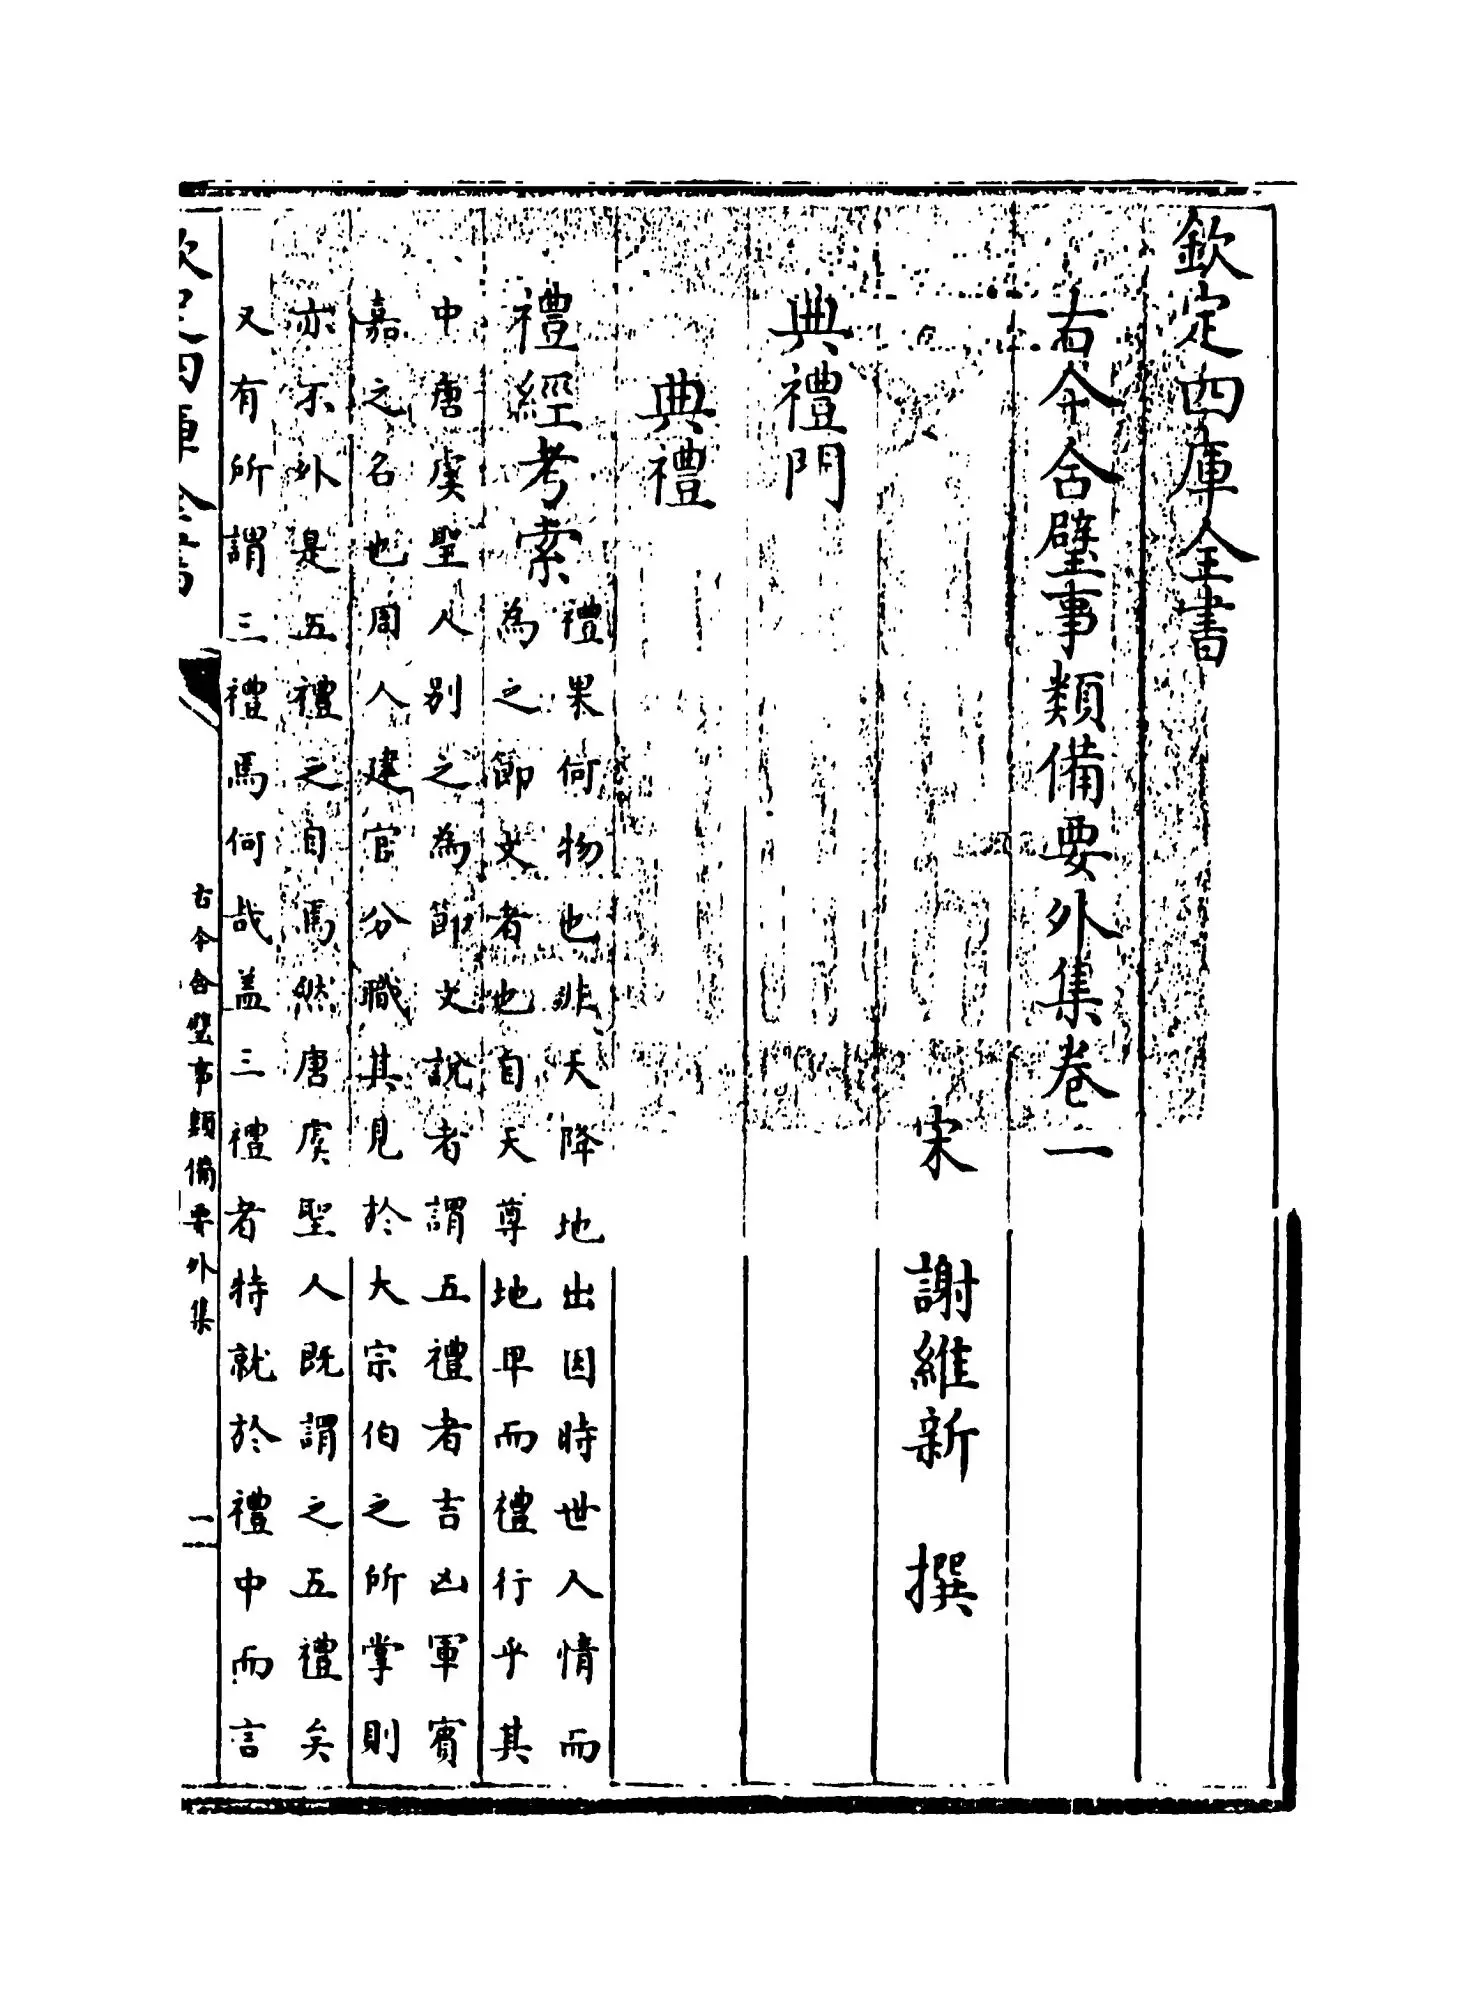 欽定四庫全書
古今合璧事類備要外集卷一
宋　謝維新　撰
典禮門
典禮
禮經考索
禮果何物也非天降地出因時世人情而
為之節文者也自天尊地卑而禮行乎其
中唐虞聖人別之為節文說者謂五禮者吉凶軍賓
嘉之名也周人建官分職其見於大宗伯之所掌則
亦不外是五禮之自焉然唐虞聖人既謂之五禮矣
又有所謂三禮焉何哉盖三禮者特就於禮中而言
欽定四庫全書
古今合璧事類備要外集
一